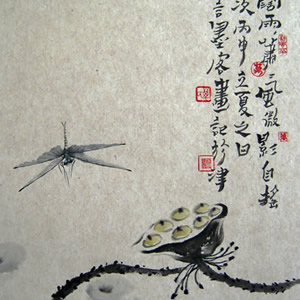 雨蕭〻風微影自搖
次丙申立夏之日
言墨客畫記於津